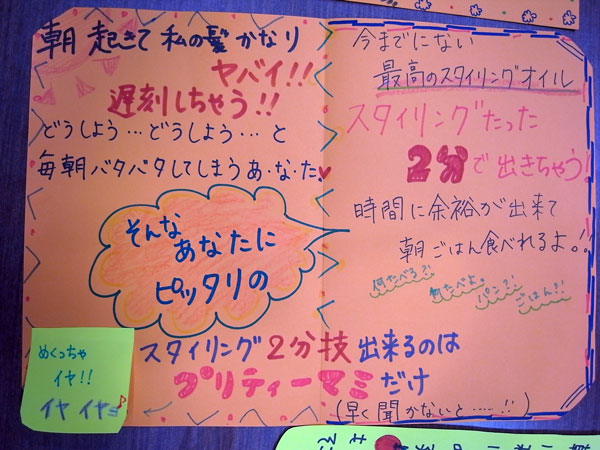 朝起きて私の髪かなり
ヤバイ!!
遅刻しちゃう!!
どうしよう…どうしよう…と
毎朝バタバタしてしまうあ・な・た♥
そんな
あなたに
ピッタリの
今までにない
最高のスタイリングオイル
スタイリングたった
2分で出きちゃう!
時間に余裕が出来て
朝ごはん食べれるよ!!
何たべる?!
何たべよ。
パン?!
ごはん!!
スタイリング2分技出来るのは
プリティーマミだけ
(早く聞かないと……!!)
めくっちゃ
イヤ!!
イヤイヤミ♪